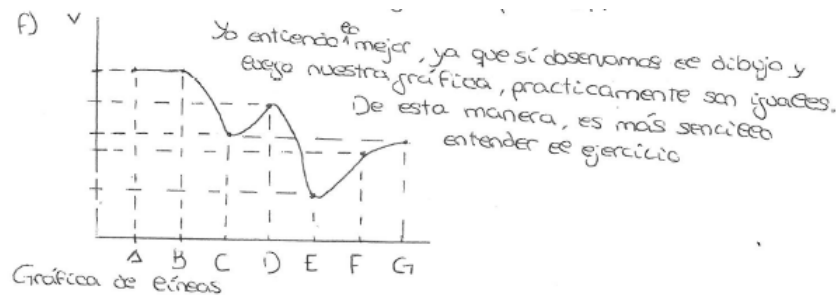 F) V
Yo entiendo el mejor, ya que sí observamos el dibujo y
luego nuestra gráfica, practicamente son iguales.
De esta manera, es más sencillo
entender el ejercicio
A B C D E F G
Gráfica de líneas